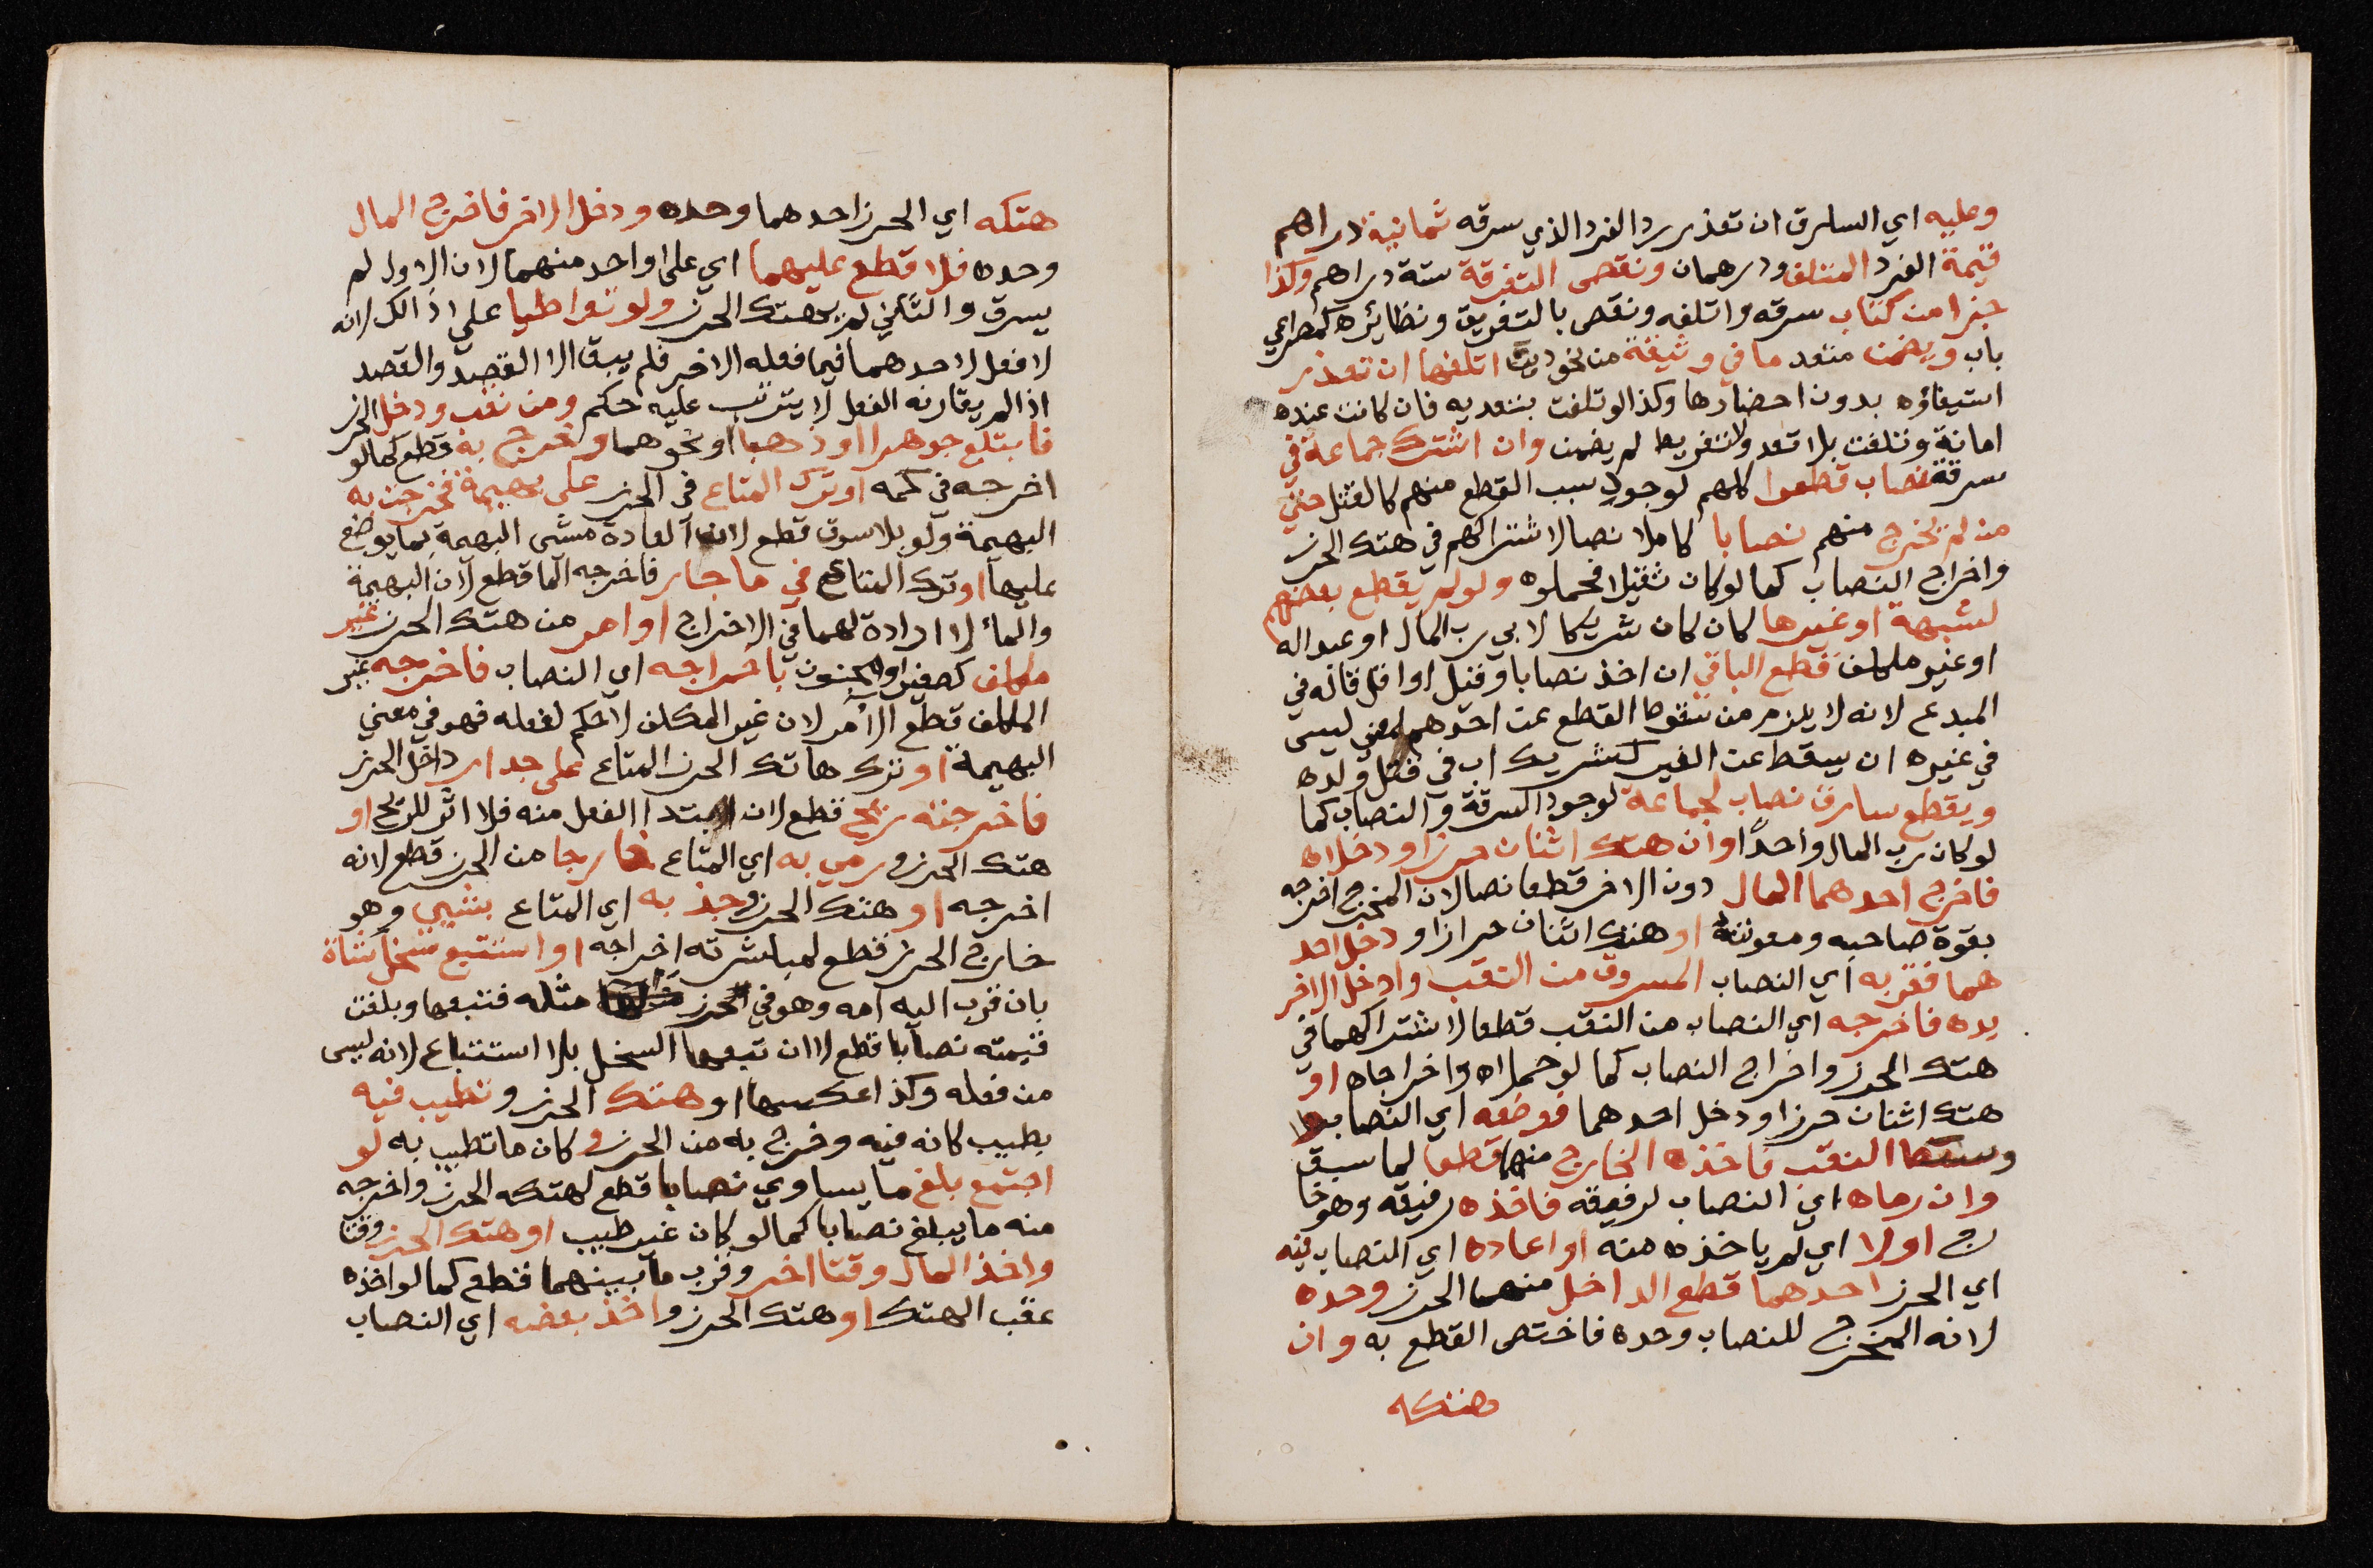 وعليه اي السارق ان تعذر رد الفرد الذي سرقه ثمانية دراهم
قيمة الفرد المتلف ودرهمان ونقص التفرقة ستة دراهم وكذا
جزا من كتاب سرقه واتلفه ونقص بالتفريق ونظائره كمصراعي
باب ويضمن متعد ما في وثيقة من نحو دين اتلفها ان تعذر
استيفاؤه بدون احضارها وكذا لو تلفت بتعديه فان كانت عنده
امانة وتلفت بلا تعد ولا تفريط لم يضمن وان اشترك جماعة في
سرقة نصاب قطعوا كلهم لوجود سبب القطع منهم كالقتل حتي
من لم يخرج منهم نصابا كاملا نصا لاشتراكهم في هتك الحرز
واخراج النصاب كما لو كان ثقيلا فحملوه ولو لم يقطع بعضهم
لشبهة او غيرها كان كان شريكا لابي رب المال او عبدا له
او غير مكلف قطع الباقي ان اخذ نصابا وقيل او اقل قاله في
المبدع لانه لا يلزم من سقوط القطع عن احدهم لمعني ليس
في غيره ان يسقط عن الغير كشريك اب في قتل ولده
ويقطع سارق نصاب لجماعة لوجود السرقة والنصاب كما
لو كان رب المال واحدًا وان هتك اثنان حرزا ودخلاه
فاخرج احدهما المال دون الاخر قطعا نصا لان المخرج اخرجه
بقوة صاحبه ومعونته او هتك اثنان حرازا ودخل احد
هما فقربه اي النصاب المسروق من النقب وادخل الاخر
يده فاخرجه اي النصاب من النقب قطعا لاشتراكهما في
هتك الحرز واخراج النصاب كما لو حملاه واخراجاه او
هتك اثنان حرزا ودخل احدهما فوضعه اي النصاب
وسط النقب فاخذه الخارج منهما قطعا لما سبق
وان رماه اي النصاب لرفيقه فاخذه رفيقه وهو خا
رج اولا اي لم ياخذه منه او اعاده اي النصاب فيه
اي الحرز احدهما قطع الداخل منهما الحرز وحده
لانه المخرج للنصاب وحده فاختص القطع به وان
هتكه
هتكه اي الحرز احدهما وحده ودخل الاخر فاخرج المال
وحده فلا قطع عليهما اي علي واحد منهما لان الاول لم
يسرق والثاني لم يهتك الحرز ولو تواطيا علي ذالك لانه
لا فعل لاحدهما فيما فعله الاخر فلم يبق الا القصد والقصد
اذا لم يقارنه الفعل لا يترتب عليه حكم ومن نقب ودخل الحرز
فابتلع جوهرا او ذهبا او نحوهما وخرج به قطع كما لو
اخرجه في كمه او ترك المتاع في الحرز على بهيمة فخرجت به
البهيمة ولو بلا سوق قطع لان العادة مشي البهيمة بما يوضع
عليها او ترك المتاع في ما جار فاخرجه الما قطع لان البهيمة
والماء لا ارادة لهما في الاخراج او امر من هتك الحرز غير
مكلف كصغير او مجنون باخراجه اي النصاب فاخرجه غير
المكلف قطع الآمر لان غير المكلف لا حكم لفعله فهو في معني
البهيمة او ترك هاتك الحرز المتاع على جدار داخل الحرز
فاخرجته ريح قطع لان ابتدا الفعل منه فلا اثر للريح او
هتك الحرز و رمي به اي المتاع خارجا من الحرز قطع لانه
اخرجه او هتك الحرز وجذبه اي المتاع بشيي وهو
خارج الحرز قطع لمباشرته اخراجه او استتبع سخل شاة
بان قرب اليه امه وهو في الحرز مثله فتبعها وبلغت
قيمته نصابا قطع لا ان تبعها السخل بلا استتباع لانه ليس
من فعله وكذا عكسها او هتك الحرز وتطيب فيه
بطيب كانه فيه وخرج به من الحرز و كان ما تطيب به لو
اجتمع بلغ ما يساوي نصابا قطع لهتكه الحرز واخرجه
منه ما يبلغ نصابا كما لو كان غير طيب او هتك الحرز وقتا
واخذ المال وقتا اخر وقرب ما بينهما قطع كما لو اخذه
عقب الهتك او هتك الحرز واخذ بعضه اي النصاب